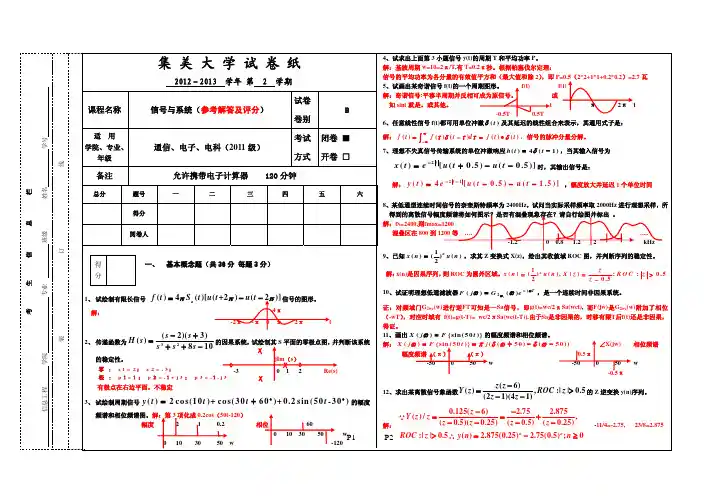 集美大学试卷纸
2012～2013 学年 第 2 学期
课程名称 信号与系统(参考解答及评分) 试卷卷别 B
适用学院、专业、年级 通信、电子、电科(2011级) 考试方式 闭卷 ■ 开卷 □
备注 允许携带电子计算器 120分钟
总分 题号 一 二 三 四 五 六
得分
阅卷人
得分
一、 基本概念题(共36分 每题3分)
1、试绘制有限长信号 f(t)=4πS_a(t)[u(t+2π)−u(t−2π)]信号的图形。
解:
4π
-2π -π π 2π t
2、传递函数为 H(s)=(s−2)(s+3)/(s³+s²+8s−10) 的因果系统,试绘制其 S 平面的零极点图,并判断该系统
的稳定性。
jIm(s)
-3 0 1 2 Re(s)
有极点在右边平面。不稳定
3、试绘制周期信号 y(t)=2cos(10t)+cos(30t+60°)+0.2sin(50t-30°) 的幅度
频谱和相位频谱图。解:第3项化成 0.2cos(50t-120)
幅度 2 1 0.2 相位 60
0 10 30 50 w 0 10 30 50 w
-120
P1
4、试求出上面第3小题信号y(t)的周期 T 和平均功率 P。
解:基波周期 w=10=2π/T,有 T=0.2π秒。根据帕塞伐尔定理:
信号的平均功率为各分量的有效值平方和(最大值和除2),即 P=0.5(2*2+1*1+0.2*0.2)=2.7 瓦
5、试画出某奇谐信号 f(t)的一个周期图形。 f(t) f(t)
解:奇谐信号:平移半周期并反相可成为原信号。 或
如 sint 就是。或其他。 -0.5T 0.5T π 2π t
6、任意线性信号 f(t)都可用单位冲激δ(t)及其延迟的线性组合来表示,其通用式子是:
解:f(t)=∫f(τ)δ(t−τ)dτ=f(t)*δ(t),信号的脉冲分量分解。
7、理想不失真信号传输系统的单位冲激响应h(t)=4δ(t−1),当其输入信号为
x(t)=e^{−2|t|}[u(t+0.5)−u(t−0.5)]时,其输出信号是:
解:y(t)=4e^{−2|t−1|}[u(t−0.5)−u(t−1.5)],幅度放大并延迟1个单位时间
8、某低通型连续时间信号的奈奎斯特频率为 2400Hz,试问当实际采样频率取 2000Hz 进行理想采样,所
得到的离散信号幅度频谱将如何图示?是否有混叠现象存在?请自行绘图并标出。
解:fs=2400,则fmax=1200
混叠区在 800 到 1200 等 ….
-1.2 0 0.8 1.2 2 kHz
9、已知 x(n)=(1/2)ⁿu(n),求其 Z 变换式 X(z),绘出其收敛域 ROC 图,并判断序列的稳定性。
解:x(n)是因果序列,则 ROC 为圆外区域。x(n)=(1/2)ⁿu(n), X(z)=z/(z−0.5); ROC:|z|>0.5
得证。
11、画出 X(jω)=F{sin(50t)}的幅度频谱和相位频谱。
幅度频谱 (π) (π) 0.5π ∠X(jw) 相位频谱
-50 50 w -50 0 50 w
-0.5π
12、求出某离散信号象函数Y(z)=z(z−6)/((2z−1)(4z−1)), ROC:|z|>0.5的 Z 逆变换 y(n)序列。
解:∵Y(z)/z=0.125(z−6)/((z−0.5)(z−0.25))=−2.75/(z−0.5)+2.875/(z−0.25), -11/4=-2.75, 23/8=2.875
ROC:|z|>0.5∴y(n)=2.875(0.25)ⁿ−2.75(0.5)ⁿ;n≥0
P2